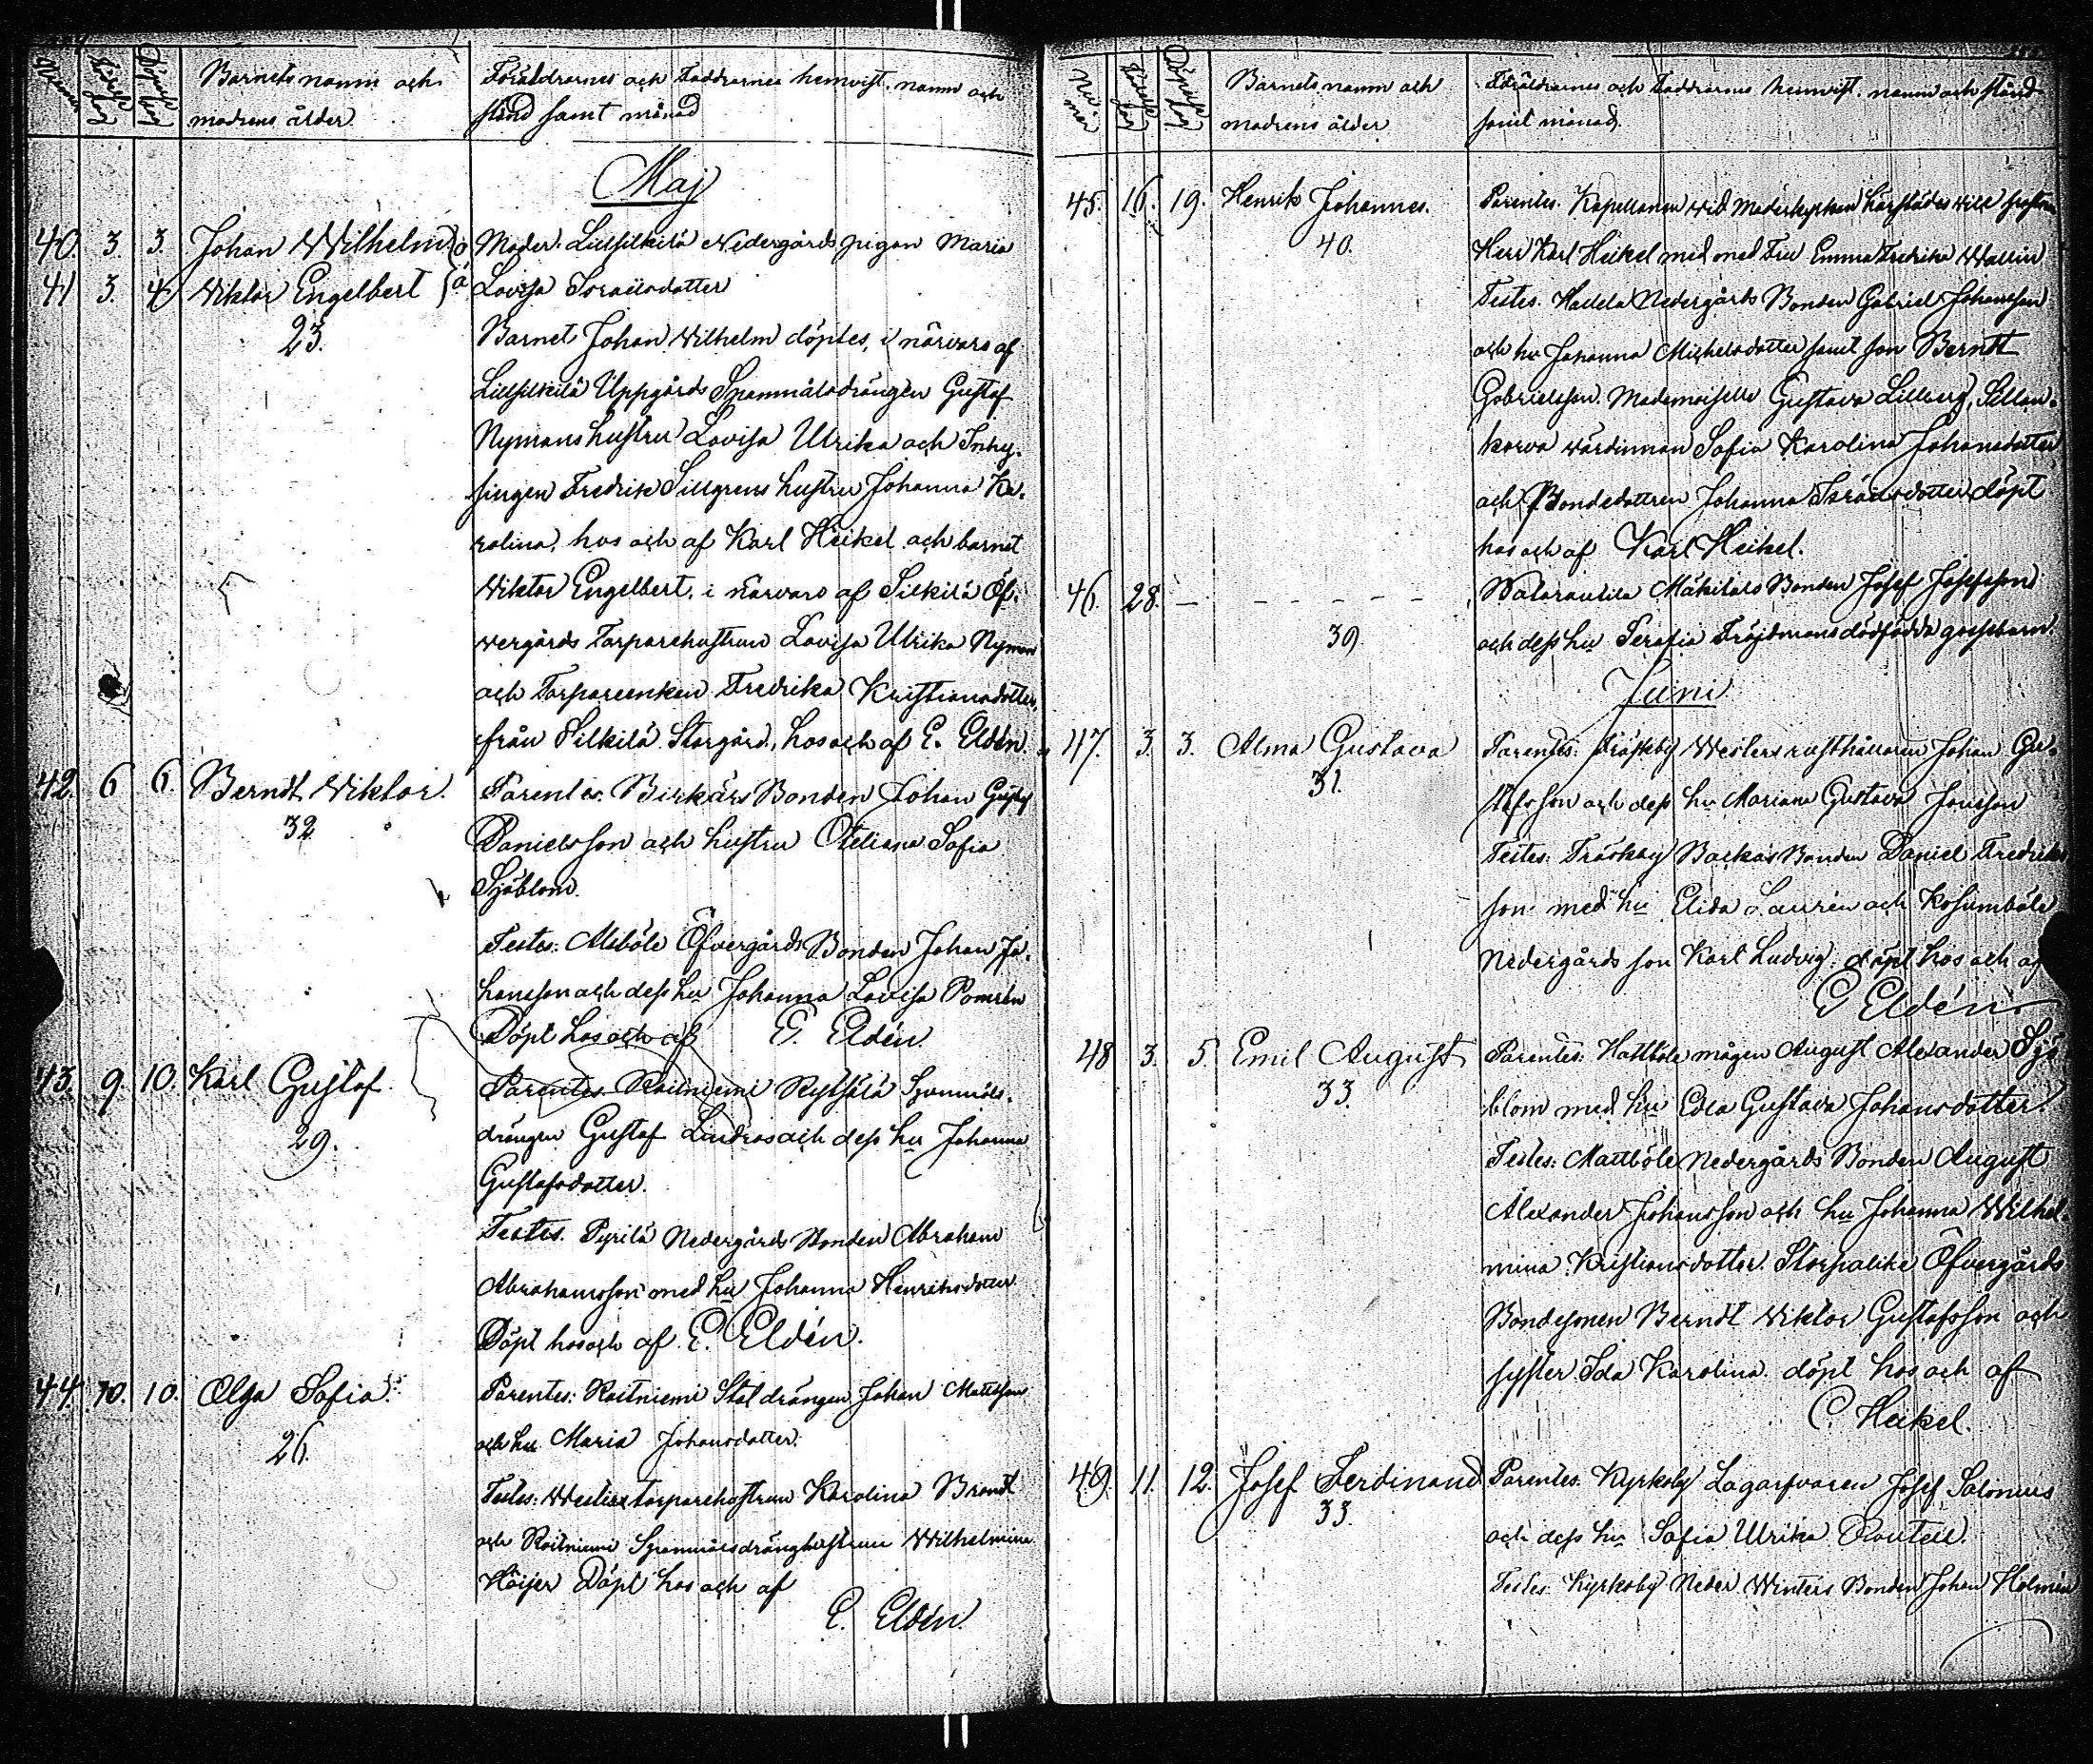 Nummer
Födelse dag
Döpelse dag
Barnets namn och
modrens ålder
Föräldrarnes och Faddrarnes hemvist, namn och
stånd samt månad
Maj
40. 3. 3. Johan Wilhelm } o
41 3. 4. Viktor Engelbert } ä
23.
Moder: Lillsilkilä Nedergårds pigan Maria
Lovisa Israelsdotter
Barnet Johan Wilhelm döptes, i närvaro af
Lillsilkilä Uppgårds Spannmålsdrängen Gustaf
Nymans hustru Lovisa Ulrika och Inhy-
singen Fredrik Sillgrens hustru Johanna Ka-
rolina, hos och af Karl Heikel och barnet
Viktor Engelbert, i närvaro af Silkilä Öf-
vergårds Torparehustrun Lovisa Ulrika Nyman
och Torpareenkan Fredrika Kristiansdotter,
från Silkilä Storgård, hos och af E. Eldén.
42. 6 6. Berndt Viktor.
32
Parentes: Birkärs Bonden Johan Gustaf
Danielsson och hustru Oteliana Sofia
Sjöblom.
Testes: Meböle Öfvergårds Bonden Johan Jo-
hansson och dess hu Johanna Lovisa Pomrén
Döpt hos och af E. Eldén
43. 9. 10. Karl Gustaf.
29.
Parentes. Roitniemi Spanmåls-
drängen Gustaf Lindros och dess hu Johanna
Gustafsdotter.
Testes. Pyrilä Nedergårds Bonden Abraham
Abrahamsson med hu Johanna Henriksdotter
Döpt hos och af E. Eldén.
44. 10. 10. Olga Sofia.
26.
Parentes: Roitniemi Staldrängen Johan Mattsson
och hu Maria Johansdotter.
Testes: Westers torparehustrun Karolina Brandt
och Roitniemi Spanmålsdränghustrun Wilhelmina
Höijer Döpt hos och af
E. Eldén.
Nummer
Födelse dag
Döpelse dag
Barnets namn och
modrens ålder
Föräldrarnes och Faddrarnes hemvist, namn och stånd
samt månad.
45. 16. 19. Henrik Johannes.
40.
Parentes. Kapellanen wid Moderkyrkan
Herr Karl Heikel med Fru Emma Fredrika Wallin
Testes. Hallela Nedergårds Bonden Gabriel Johansson
och hu Johanna Michelsdotter samt son Berndt
Gabrielsson. Mademoiselle Gustava Lillberg, Sillan-
korva wärdinnan Sofia Karolina Johansdotter
och Bondedottren Johanna Israelsdotter, döpt
hos och af Karl Heikel.
46. 28. — - - - - - -
39.
Mäkitalo Bonden Josef Josefsson
och dess hu Serafia Fröjdmans dödfödda gossebarn.
Juni
47. 3. 3. Alma Gustava
31.
Parentes: Träskby Westers rusthållaren Johan Gu-
stafsson och dess hu Mariana Gustava Jonsson
Testes: Träskby Backas Bonden Daniel Fredriks-
son med hu Elida Laurén och Kosumböle
Nedergårds son Karl Ludvig, döpt hos och af
E Eldén
48 3. 5. Emil August
33.
Parentes: Hattböle mågen August Alexander Sjö-
blom med hu Edla Gustava Johansdotter.
Testes: Mattböle Nedergårds Bonden August
Alexander Johansson och hu Johanna Wilhel-
mina Kristiansdotter. Storpalike Öfvergårds
Bondesonen Berndt Viktor Gustafsson och
syster Ida Karolina. döpt hos och af
C. Heikel.
49. 11. 12. Josef Ferdinand
33.
Parentes. Kyrkoby Lagarfvaren Josef Salonius
och dess hu Sofia Ulrika Rautell.
Testes: Kyrkoby Neder Winters Bonden Johan Holmén